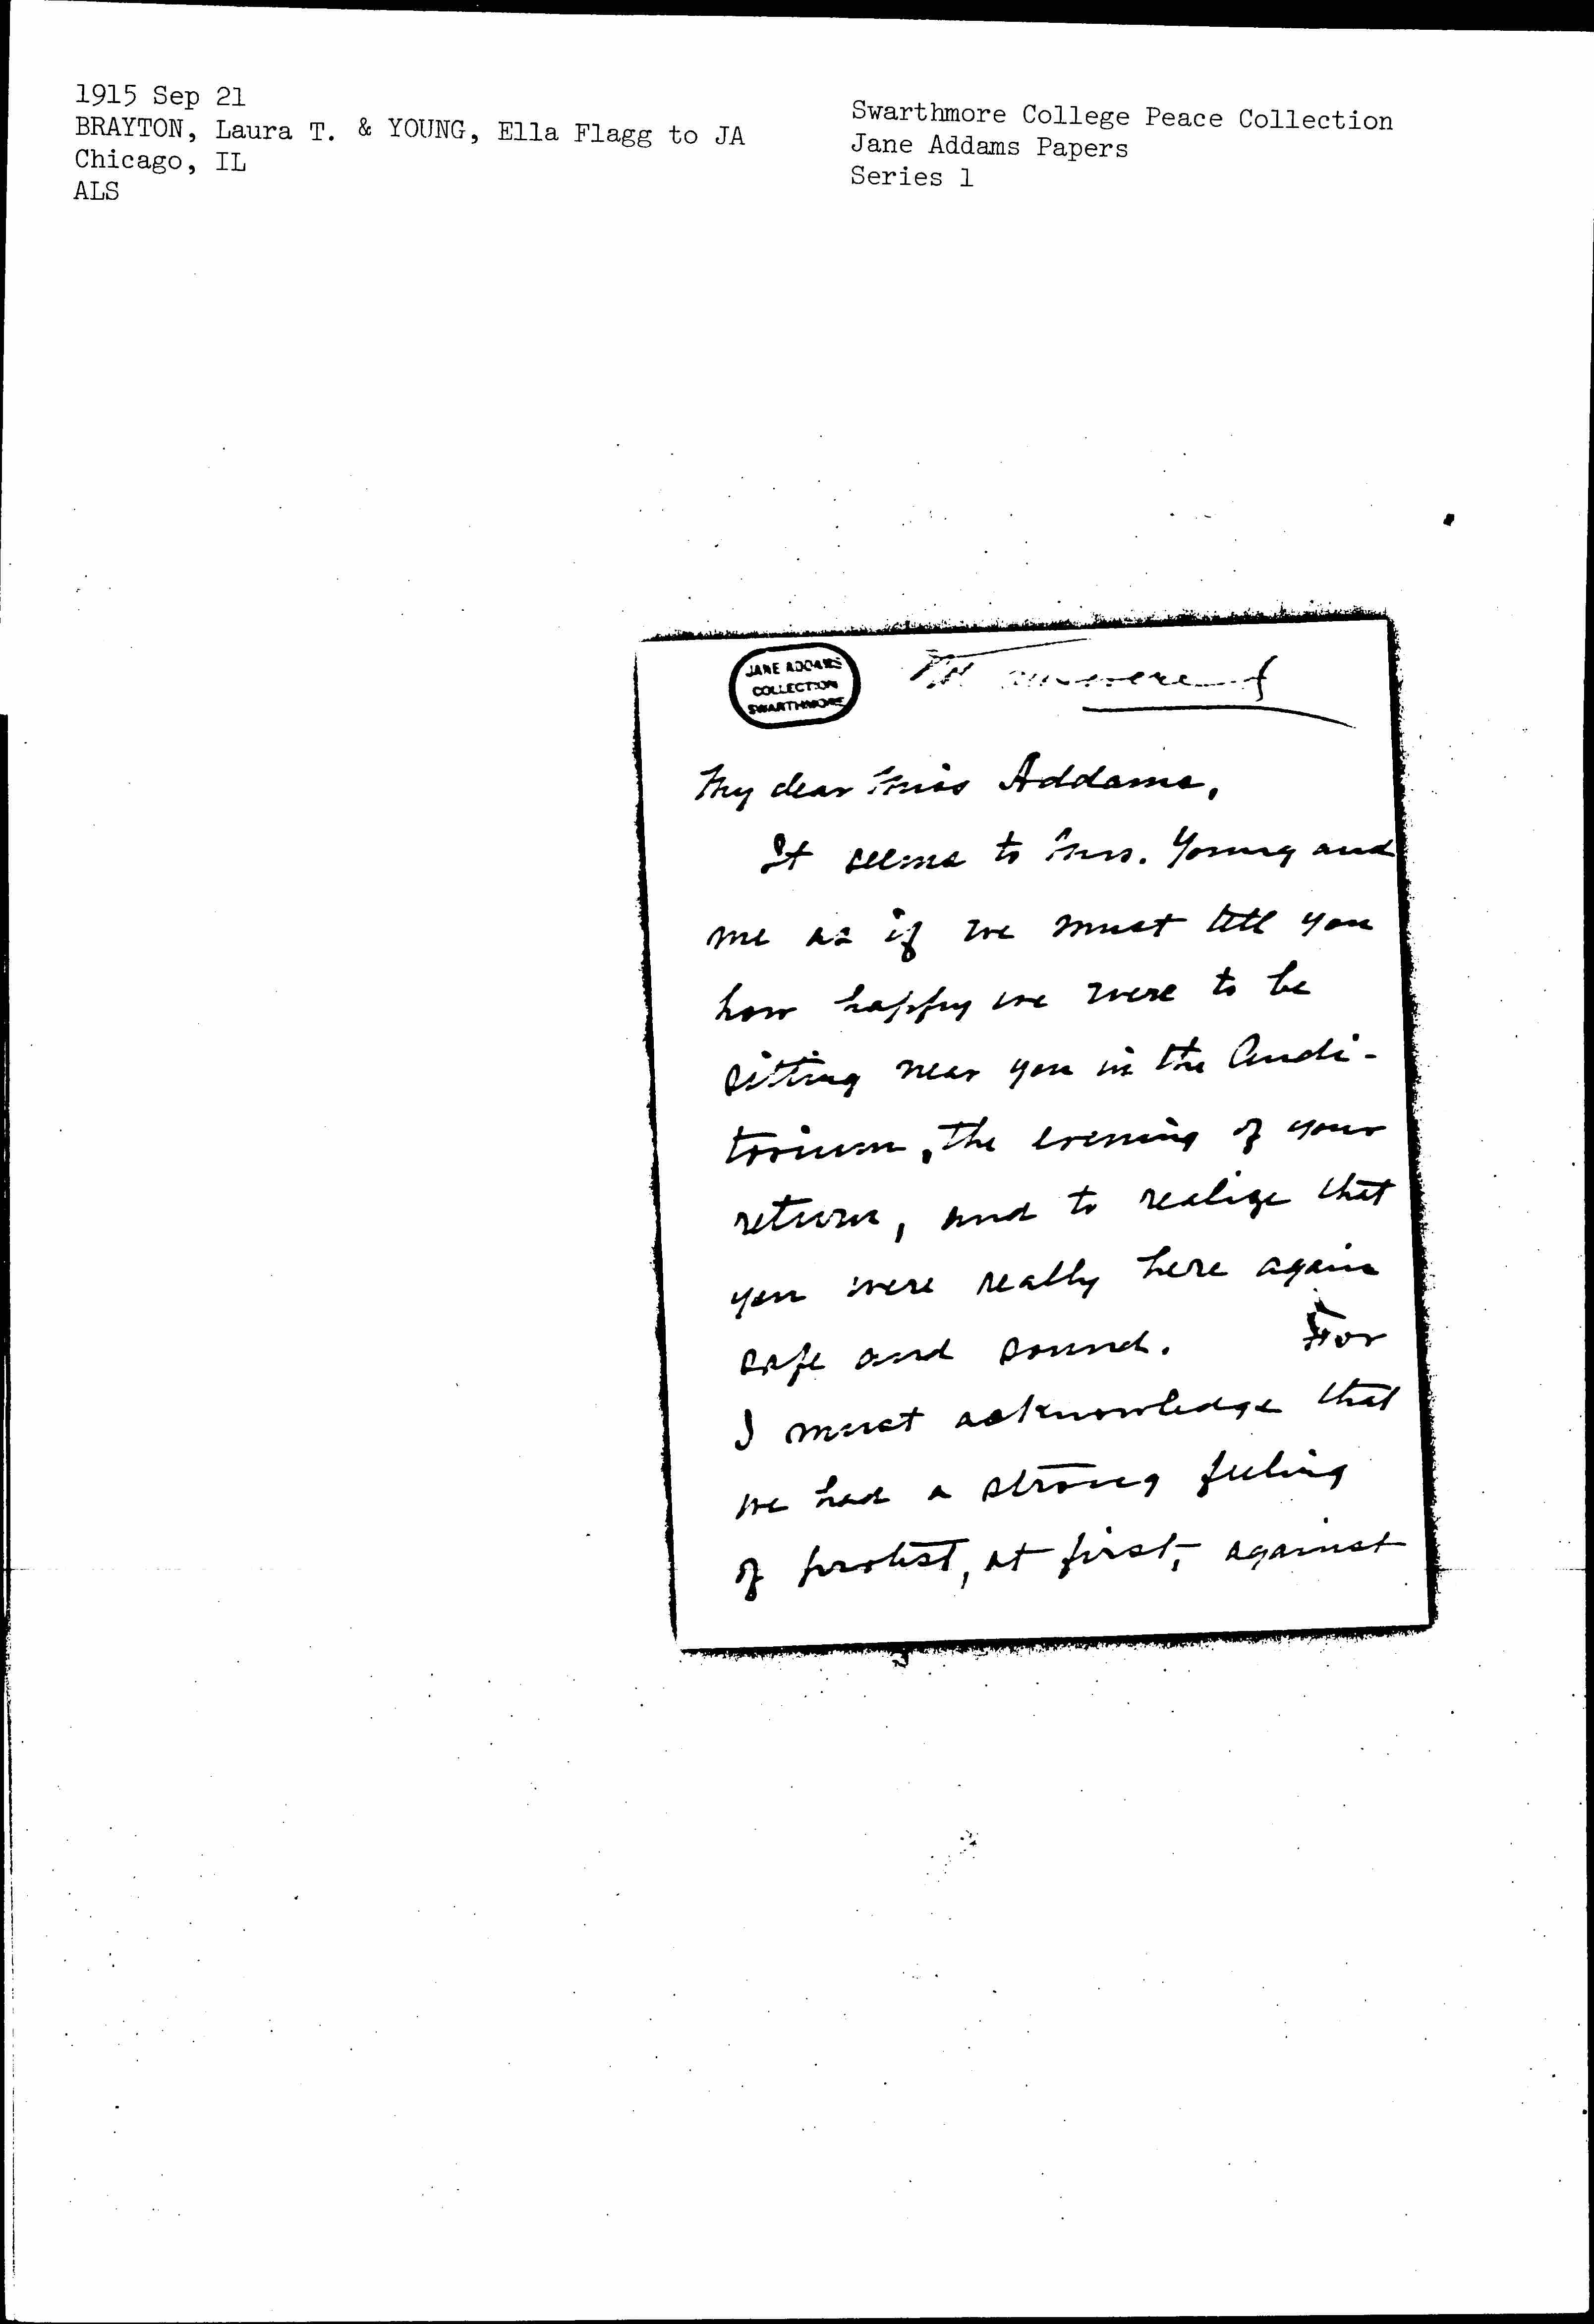 1915 Sep 21
BRAYTON, Laura T. & YOUNG, Ella Flagg to JA
Chicago, IL
ALS
Swarthmore College Peace Collection
Jane Addams Papers
Series 1
JANE ADDAMS
COLLECTION
SWARTHMORE
answered
My dear Miss Addams,
It seems to Mrs. Young and
me as if we must tell you
how happy we were to be
sitting near you in the Audi-
torium, the evening of your
return, and to realize that
you were really here again
safe and sound. For
I must acknowledge that
we had a strong feeling
of protest, at first, against